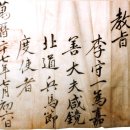 教旨
李守一爲嘉
善大夫咸鏡
北道兵馬節
度使者
萬曆二十七年十月初